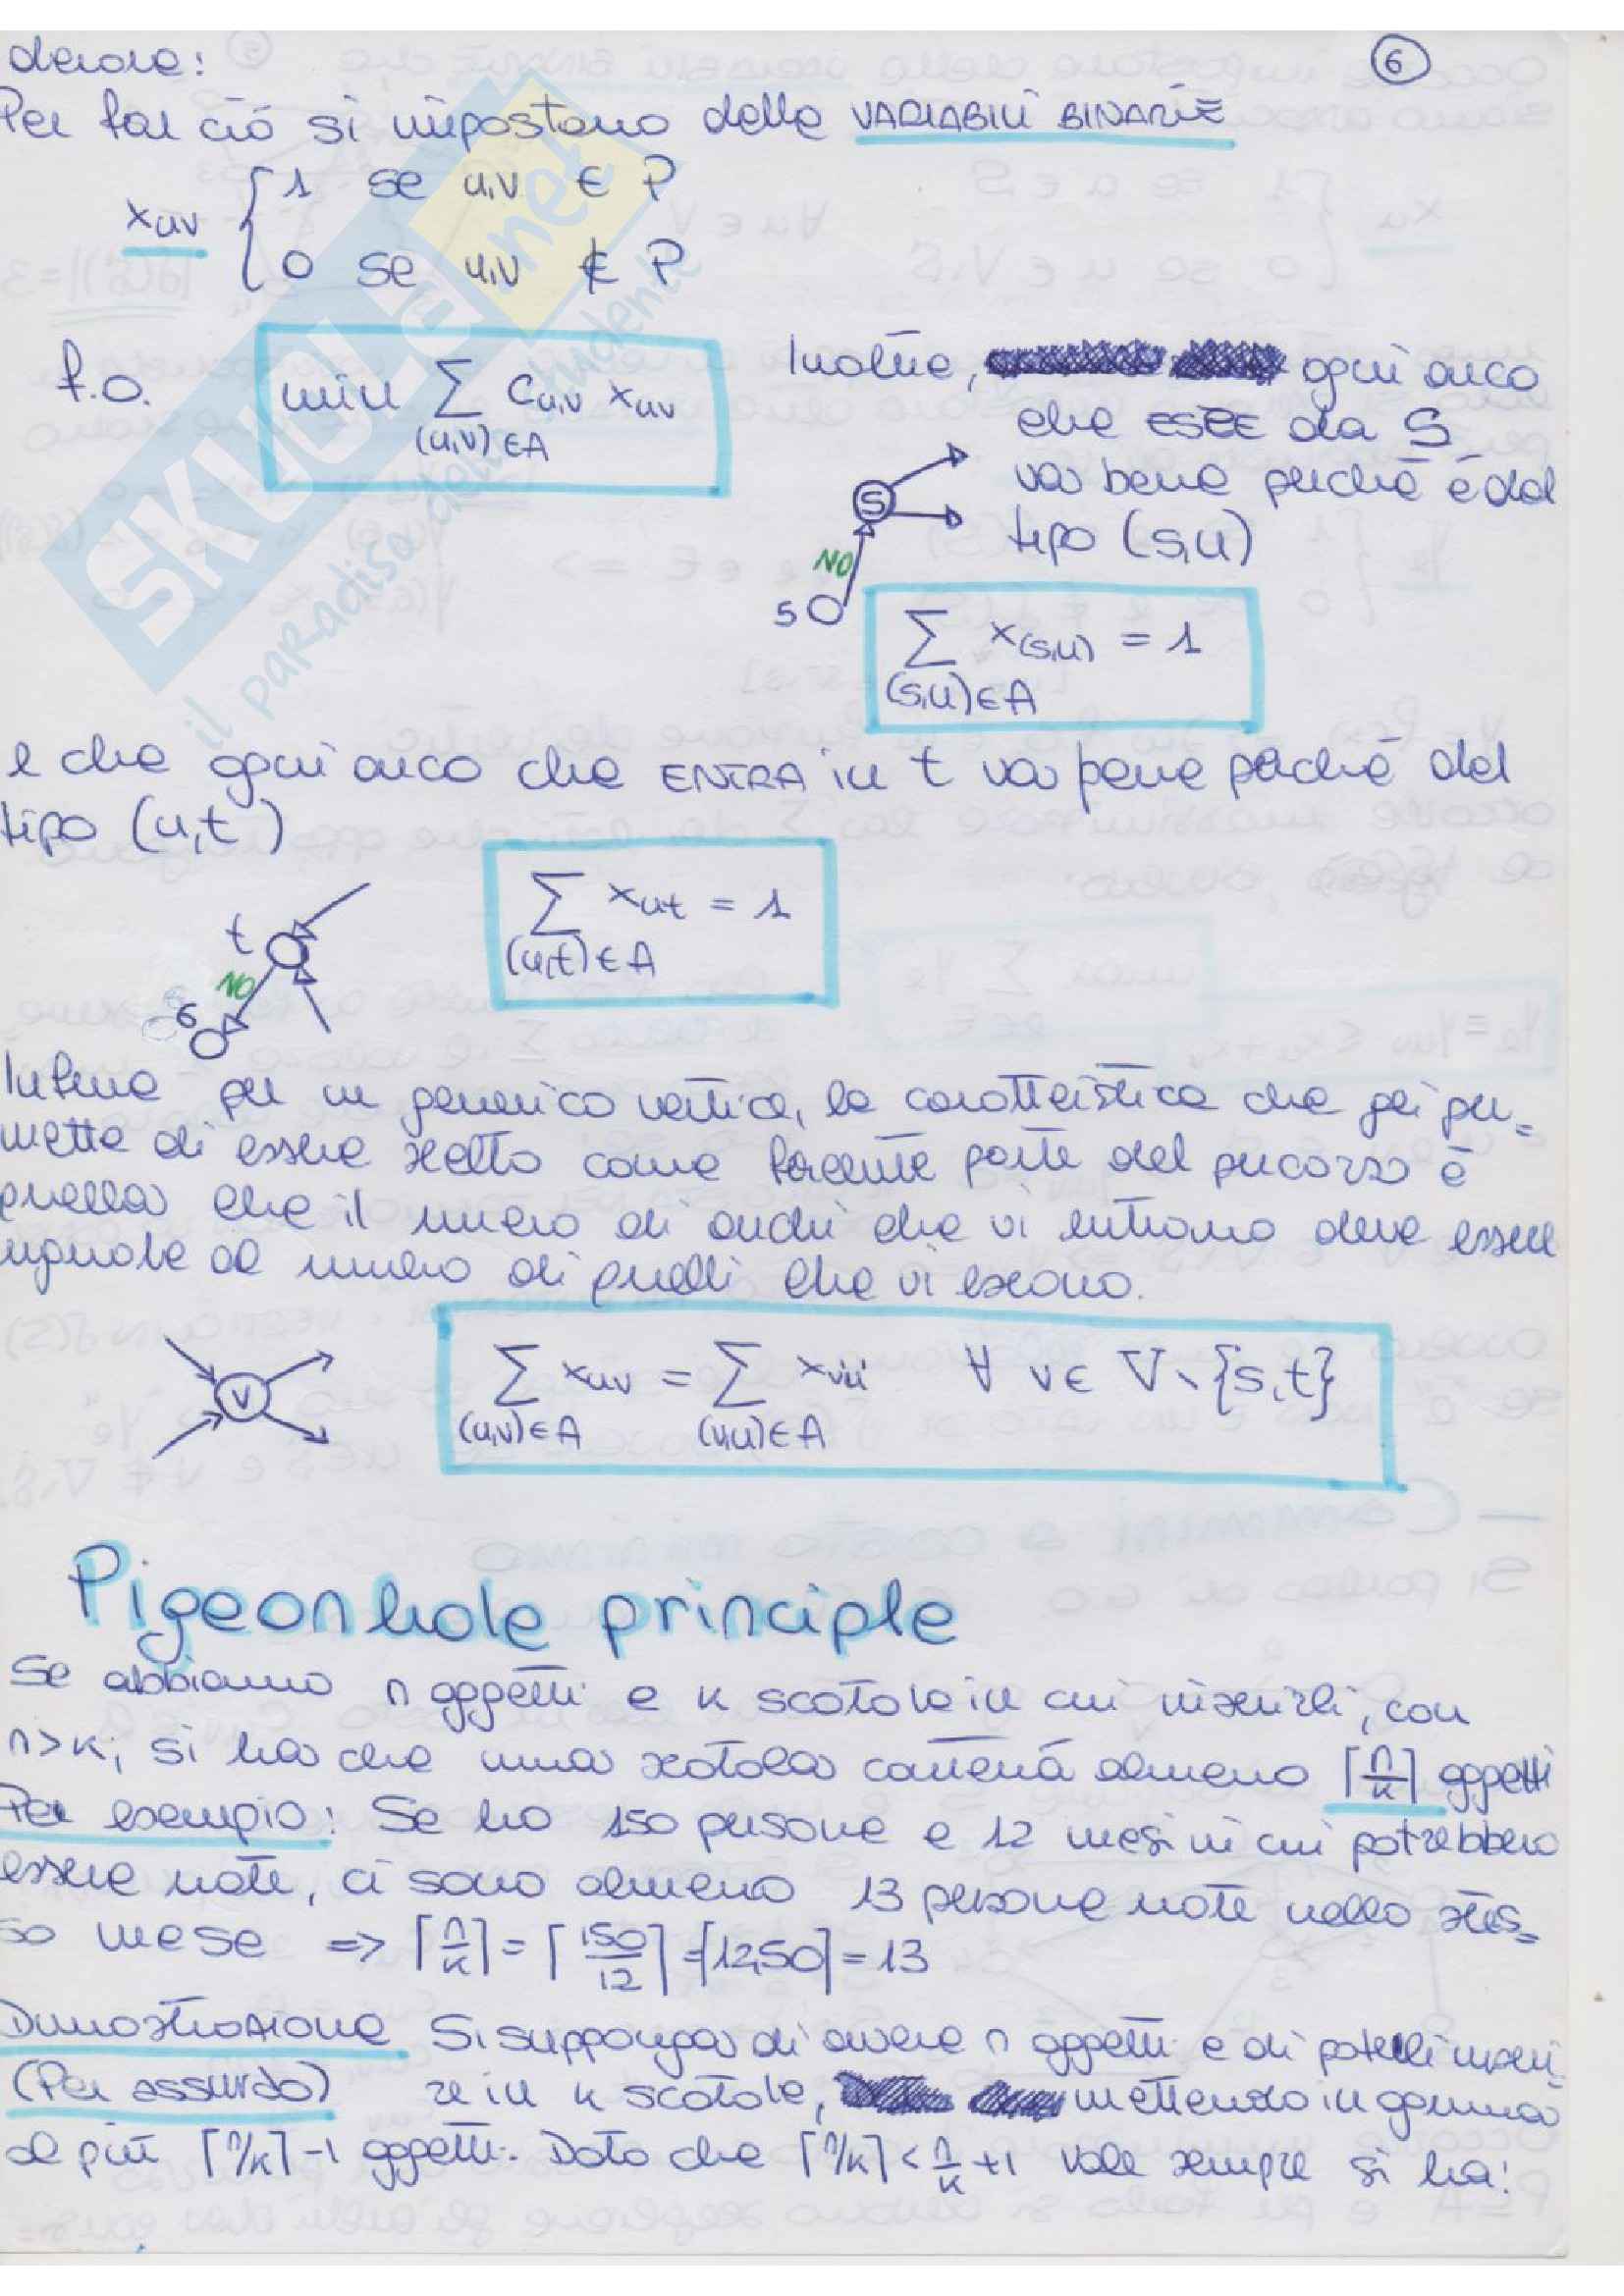 6
derore:
Per far ciò si impostano delle VARIABILI BINARIE
x_uv { 1 se u,v ∈ P
0 se u,v ∉ P
f.o.
min ∑ c_u,v x_uv
(u,v) ∈ A
Inoltre, ogni arco
che ESCE da S
va bene perché è del
tipo (s,u)
S
NO
5
∑ x_(s,u) = 1
(s,u) ∈ A
e che ogni arco che ENTRA in t va bene perché del
tipo (u,t)
t
NO
6
∑ x_ut = 1
(u,t) ∈ A
Infine per un generico vertice, la caratteristica che gli per=
mette di essere scelto come facente parte del percorso è
quella che il numero di archi che vi entrano deve essere
uguale al numero di quelli che vi escono.
v
∑ x_uv = ∑ x_vu ∀ v ∈ V \ {s,t}
(u,v) ∈ A (v,u) ∈ A
Pigeonhole principle
Se abbiamo n oggetti e k scatole in cui inserirli, con
n>k, si ha che una scatola conterrà almeno ⌈n/k⌉ oggetti
Per esempio: Se ho 150 persone e 12 mesi in cui potrebbero
essere nate, ci sono almeno 13 persone nate nello stes=
so mese => ⌈n/k⌉ = ⌈150/12⌉ = ⌈12,50⌉ = 13
Dimostrazione Si supponga di avere n oggetti e di poterli inseri=
(Per assurdo) re in k scatole, mettendo in ognuna
al più ⌈n/k⌉-1 oggetti. Dato che ⌈n/k⌉ < n/k +1 vale sempre si ha:
SKUOLA.net
il paradiso dello studente